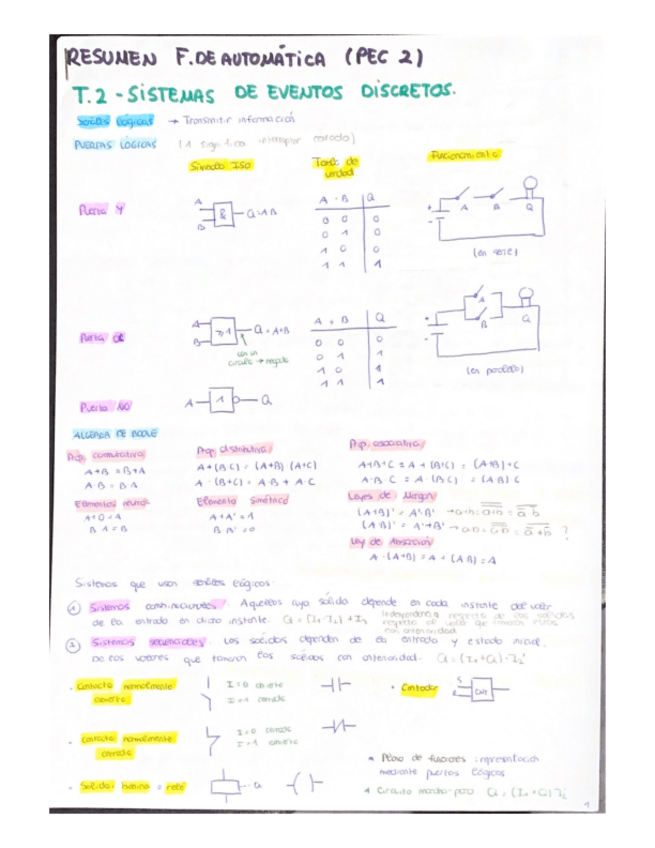 RESUMEN F. DE AUTOMÁTICA (PEC 2)
T.2 - SISTEMAS DE EVENTOS DISCRETOS.
Señales lógicas → Transmitir información
PUERTAS LÓGICAS (1 significa interruptor cerrado)
Símbolo ISO Tabla de verdad Funcionamiento
Puerta Y
A B & Q=A·B
A · B Q
0 0 0
0 1 0
1 0 0
1 1 1
+ - A B Q
(en serie)
Puerta O
A B ≥1 Q = A+B
con un círculo → negado
A + B Q
0 0 0
0 1 1
1 0 1
1 1 1
+ - A B Q
(en paralelo)
Puerta NO
A 1 Q
ALGEBRA DE BOOLE
Prop. conmutativa
A+B = B+A
A·B = B·A
Prop. distributiva
A+(B·C) = (A+B)·(A+C)
A·(B+C) = A·B + A·C
Prop. asociativa
A+B+C = A+(B+C) = (A+B)+C
A·B·C = A·(B·C) = (A·B)·C
Elementos neutros
A+0=A
B·1=B
Elemento Simétrico
A+A'=1
B·B'=0
Leyes de Morgan
(A+B)' = A'·B'
(A·B)' = A'+B'
?
Ley de Absorción
A·(A+B) = A+(AB) = A
Sistemas que usan señales lógicas:
① Sistemas combinacionales: Aquellos cuya salida depende en cada instante del valor
de la entrada en dicho instante.
Independencia respecto de las salidas
② Sistemas secuenciales: Los salidas dependen de la entrada y estado inicial.
De los valores que tomaron las salidas con anterioridad. Q=(I₁+Q)·I₂'
· Contacto normalmente abierto
I=0 abierto
I=1 cerrado
· Contador
S R CNT
· Contacto normalmente cerrado
I=0 cerrado
I=1 abierto
Plano de funciones: representación
mediante puertas lógicas
· Salida: bobina o relé
Q
Circuito marcha-paro.
1